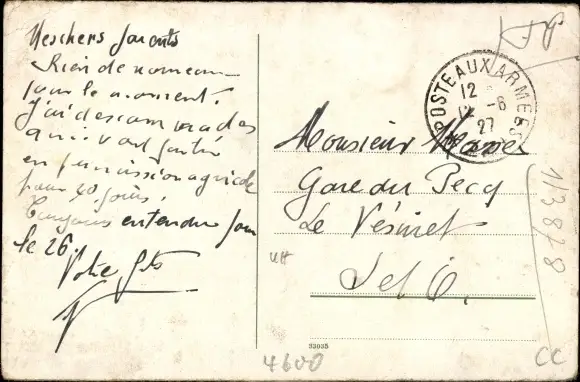 Mes chers parents
Rien de nouveau
pour le moment.
J'ai des camarades
qui vont partir
en permission agricole
pour 20 jours.
Toujours entendu pour
le 26.
Votre fils
F.P.
POSTE AUX ARMEES
12
12 - 6
27
Monsieur
Gare du Pecq
Le Vésinet
S et O.
113878
33035
4600
CC